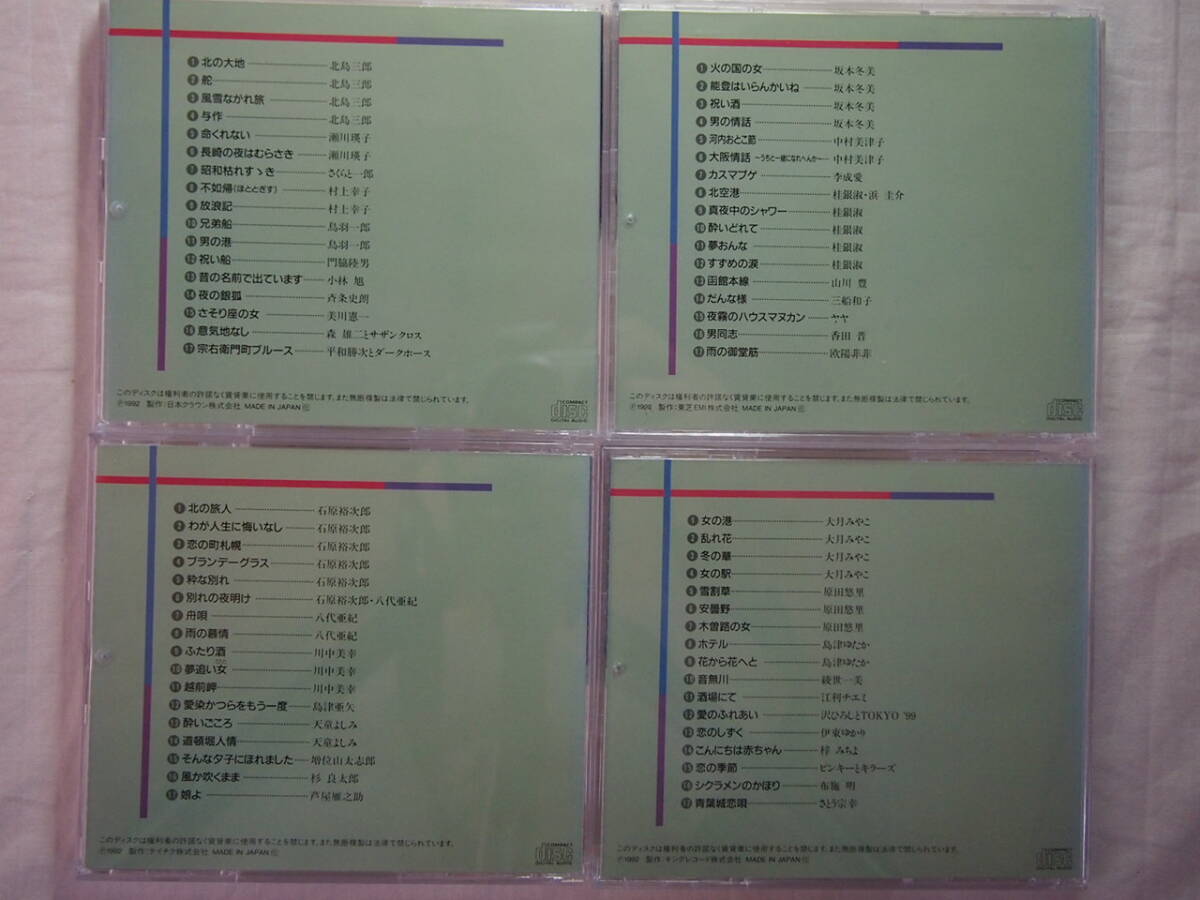 ❶北の大地 北島三郎
❷舵 北島三郎
❸風雪ながれ旅 北島三郎
❹与作 北島三郎
❺命くれない 瀬川瑛子
❻長崎の夜はむらさき 瀬川瑛子
❼昭和枯れすゝき さくらと一郎
❽不如帰(ほととぎす) 村上幸子
❾放浪記 村上幸子
❿兄弟船 鳥羽一郎
⓫男の港 鳥羽一郎
⓬祝い船 門脇陸男
⓭昔の名前で出ています 小林 旭
⓮夜の銀狐 斉条史朗
⓯さそり座の女 美川憲一
⓰意気地なし 森 雄二とサザンクロス
⓱宗右衛門町ブルース 平和勝次とダークホース
このディスクは権利者の許諾なく賃貸業に使用することを禁じます。また無断複製は法律で禁じられています。
Ⓟ1992 製作:日本クラウン株式会社 MADE IN JAPAN
COMPACT disc DIGITAL AUDIO
❶火の国の女 坂本冬美
❷能登はいらんかいね 坂本冬美
❸祝い酒 坂本冬美
❹男の情話 坂本冬美
❺河内おとこ節 中村美津子
❻大阪情話 〜うちと一緒になれへんか〜 中村美津子
❼カスマプゲ 李成愛
❽北空港 桂銀淑・浜 圭介
❾真夜中のシャワー 桂銀淑
❿酔いどれて 桂銀淑
⓫夢おんな 桂銀淑
⓬すずめの涙 桂銀淑
⓭函館本線 山川 豊
⓮だんな様 三船和子
⓯夜霧のハウスマヌカン ヤヤ
⓰男同志 香田 晋
⓱雨の御堂筋 欧陽菲菲
このディスクは権利者の許諾なく賃貸業に使用することを禁じます。また無断複製は法律で禁じられています。
Ⓟ1992 製作:東芝EMI株式会社 MADE IN JAPAN
COMPACT disc DIGITAL AUDIO
❶北の旅人 石原裕次郎
❷わが人生に悔いなし 石原裕次郎
❸恋の町札幌 石原裕次郎
❹ブランデーグラス 石原裕次郎
❺粋な別れ 石原裕次郎
❻別れの夜明け 石原裕次郎・八代亜紀
❼舟唄 八代亜紀
❽雨の慕情 八代亜紀
❾ふたり酒 川中美幸
❿夢追い女 川中美幸
⓫越前岬 川中美幸
⓬愛染かつらをもう一度 島津亜矢
⓭酔いごころ 天童よしみ
⓮道頓堀人情 天童よしみ
⓯そんな夕子にほれました 増位山太志郎
⓰風が吹くまま 杉 良太郎
⓱娘よ 芦屋雁之助
このディスクは権利者の許諾なく賃貸業に使用することを禁じます。また無断複製は法律で禁じられています。
Ⓟ1992 製作:テイチク株式会社 MADE IN JAPAN
COMPACT disc DIGITAL AUDIO
❶女の港 大月みやこ
❷乱れ花 大月みやこ
❸冬の華 大月みやこ
❹女の駅 大月みやこ
❺雪割草 原田悠里
❻安曇野 原田悠里
❼木曽路の女 原田悠里
❽ホテル 島津ゆたか
❾花から花へと 島津ゆたか
❿音無川 綾世一美
⓫酒場にて 江利チエミ
⓬愛のふれあい 沢ひろしとTOKYO '99
⓭恋のしずく 伊東ゆかり
⓮こんにちは赤ちゃん 梓 みちよ
⓯恋の季節 ピンキーとキラーズ
⓰シクラメンのかほり 布施 明
⓱青葉城恋唄 さとう宗幸
このディスクは権利者の許諾なく賃貸業に使用することを禁じます。また無断複製は法律で禁じられています。
Ⓟ1992 製作:キングレコード株式会社 MADE IN JAPAN
COMPACT disc DIGITAL AUDIO